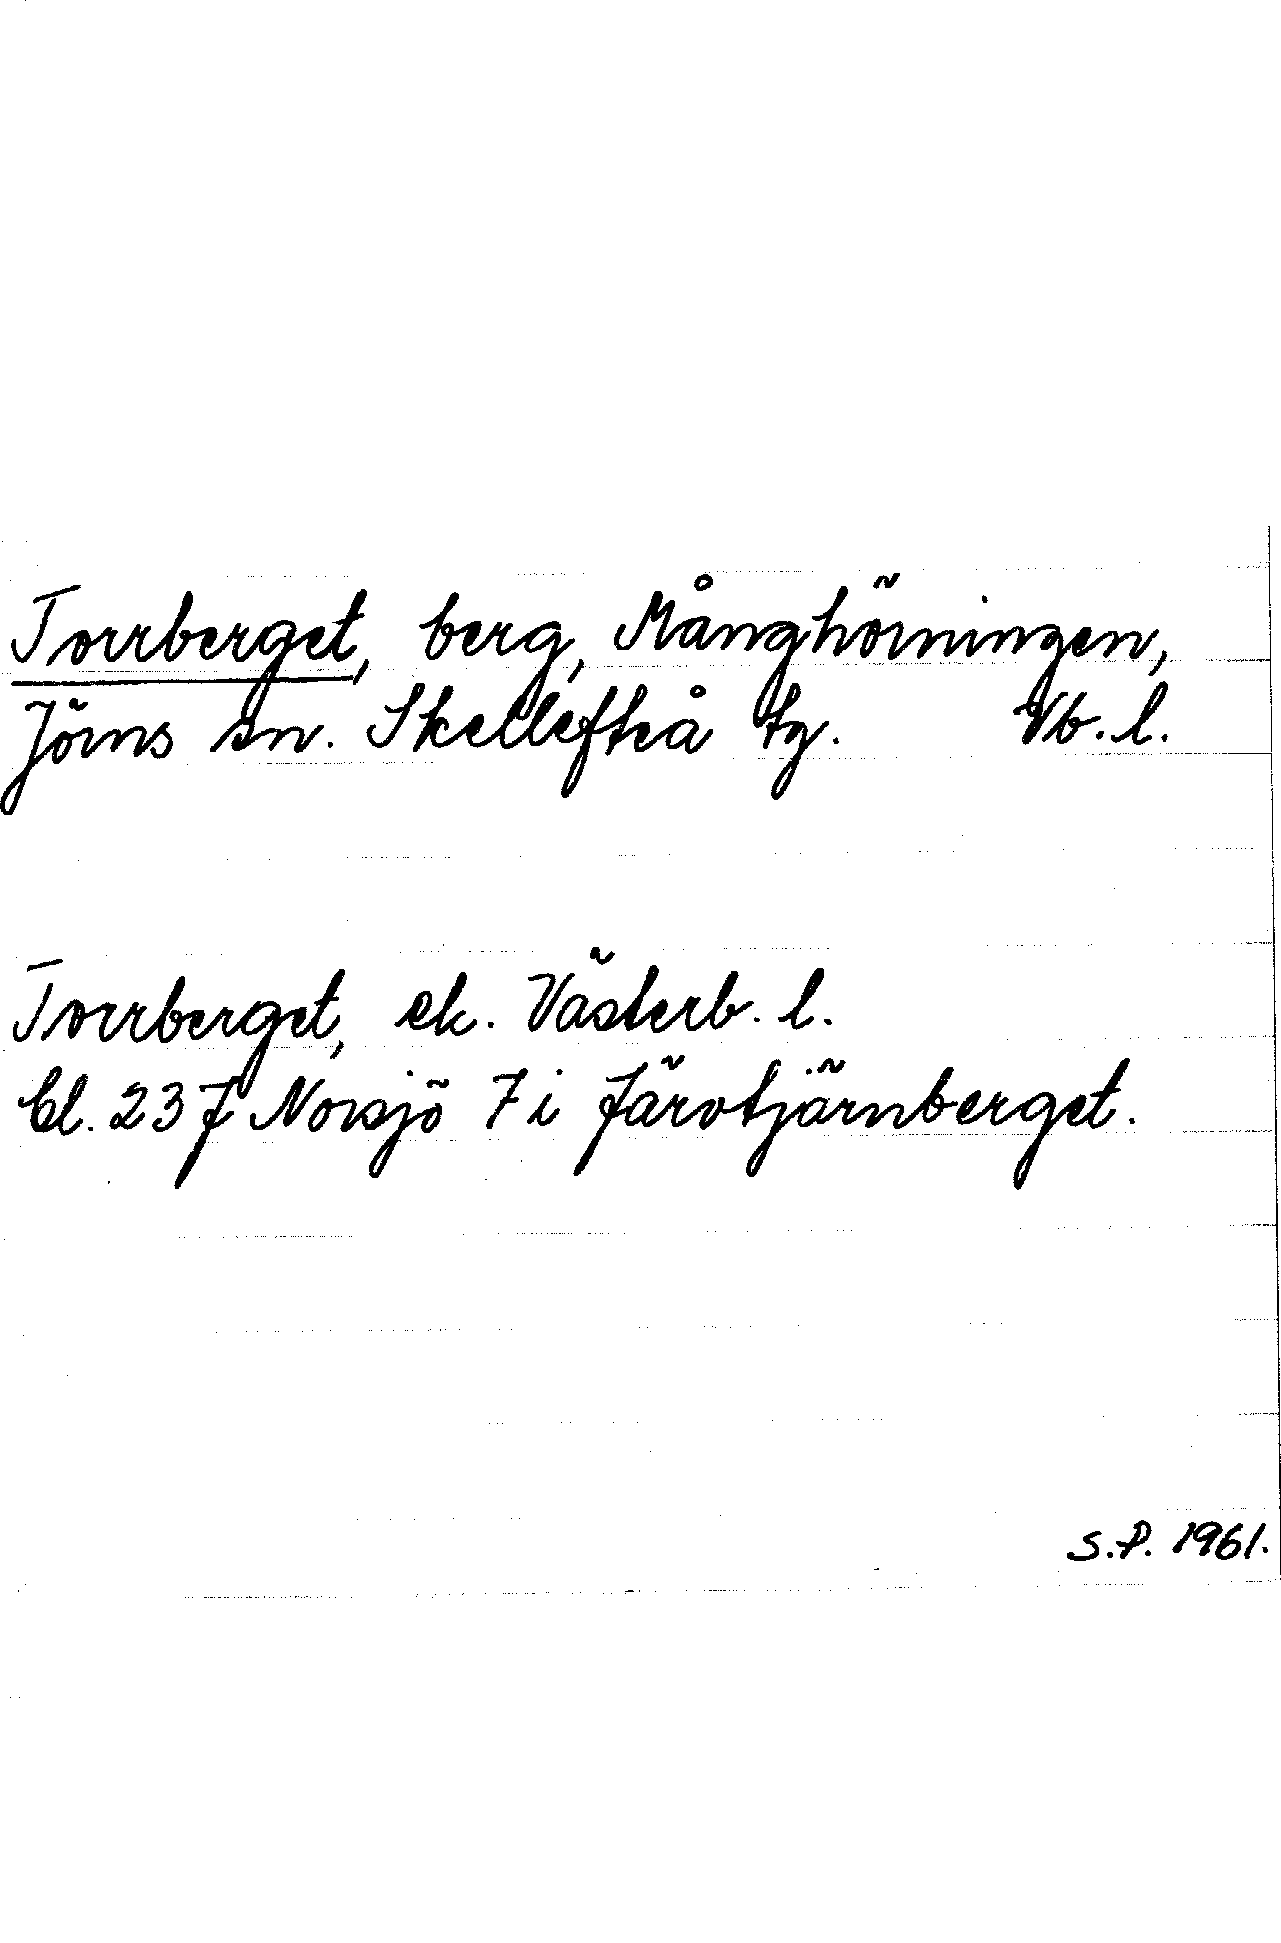 Torrberget, berg, Månghörningen,
Jörns sn. Skellefteå tg. Vb. l.
Torrberget, ek. Västerb. l.
bl. 23 J Norsjö 7 i Järvtjärnberget.
S.P. 1961.